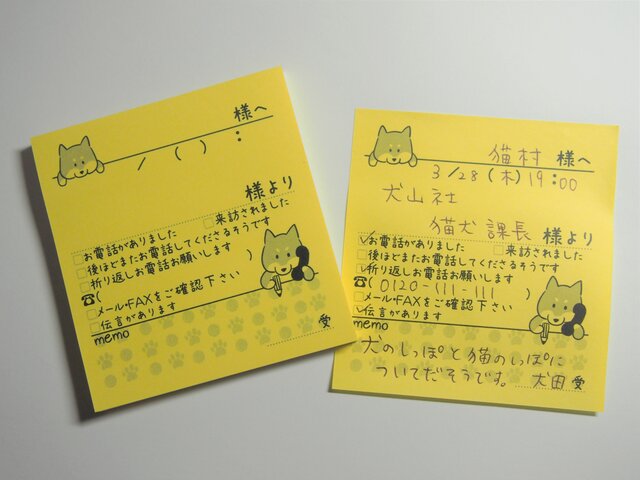 様へ
／ （ ） ：
様より
□お電話がありました □来訪されました
□後ほどまたお電話してくださるそうです
□折り返しお電話お願いします
☎（ ）
□メール・FAXをご確認下さい
□伝言があります
memo
受
猫村 様へ
3／28（木）19：00
犬山社
猫犬 課長 様より
☑お電話がありました □来訪されました
□後ほどまたお電話してくださるそうです
☑折り返しお電話お願いします
☎（0120-111-111 ）
□メール・FAXをご確認下さい
☑伝言があります
memo
犬のしっぽと猫のしっぽに
ついてだそうです。 犬田 受